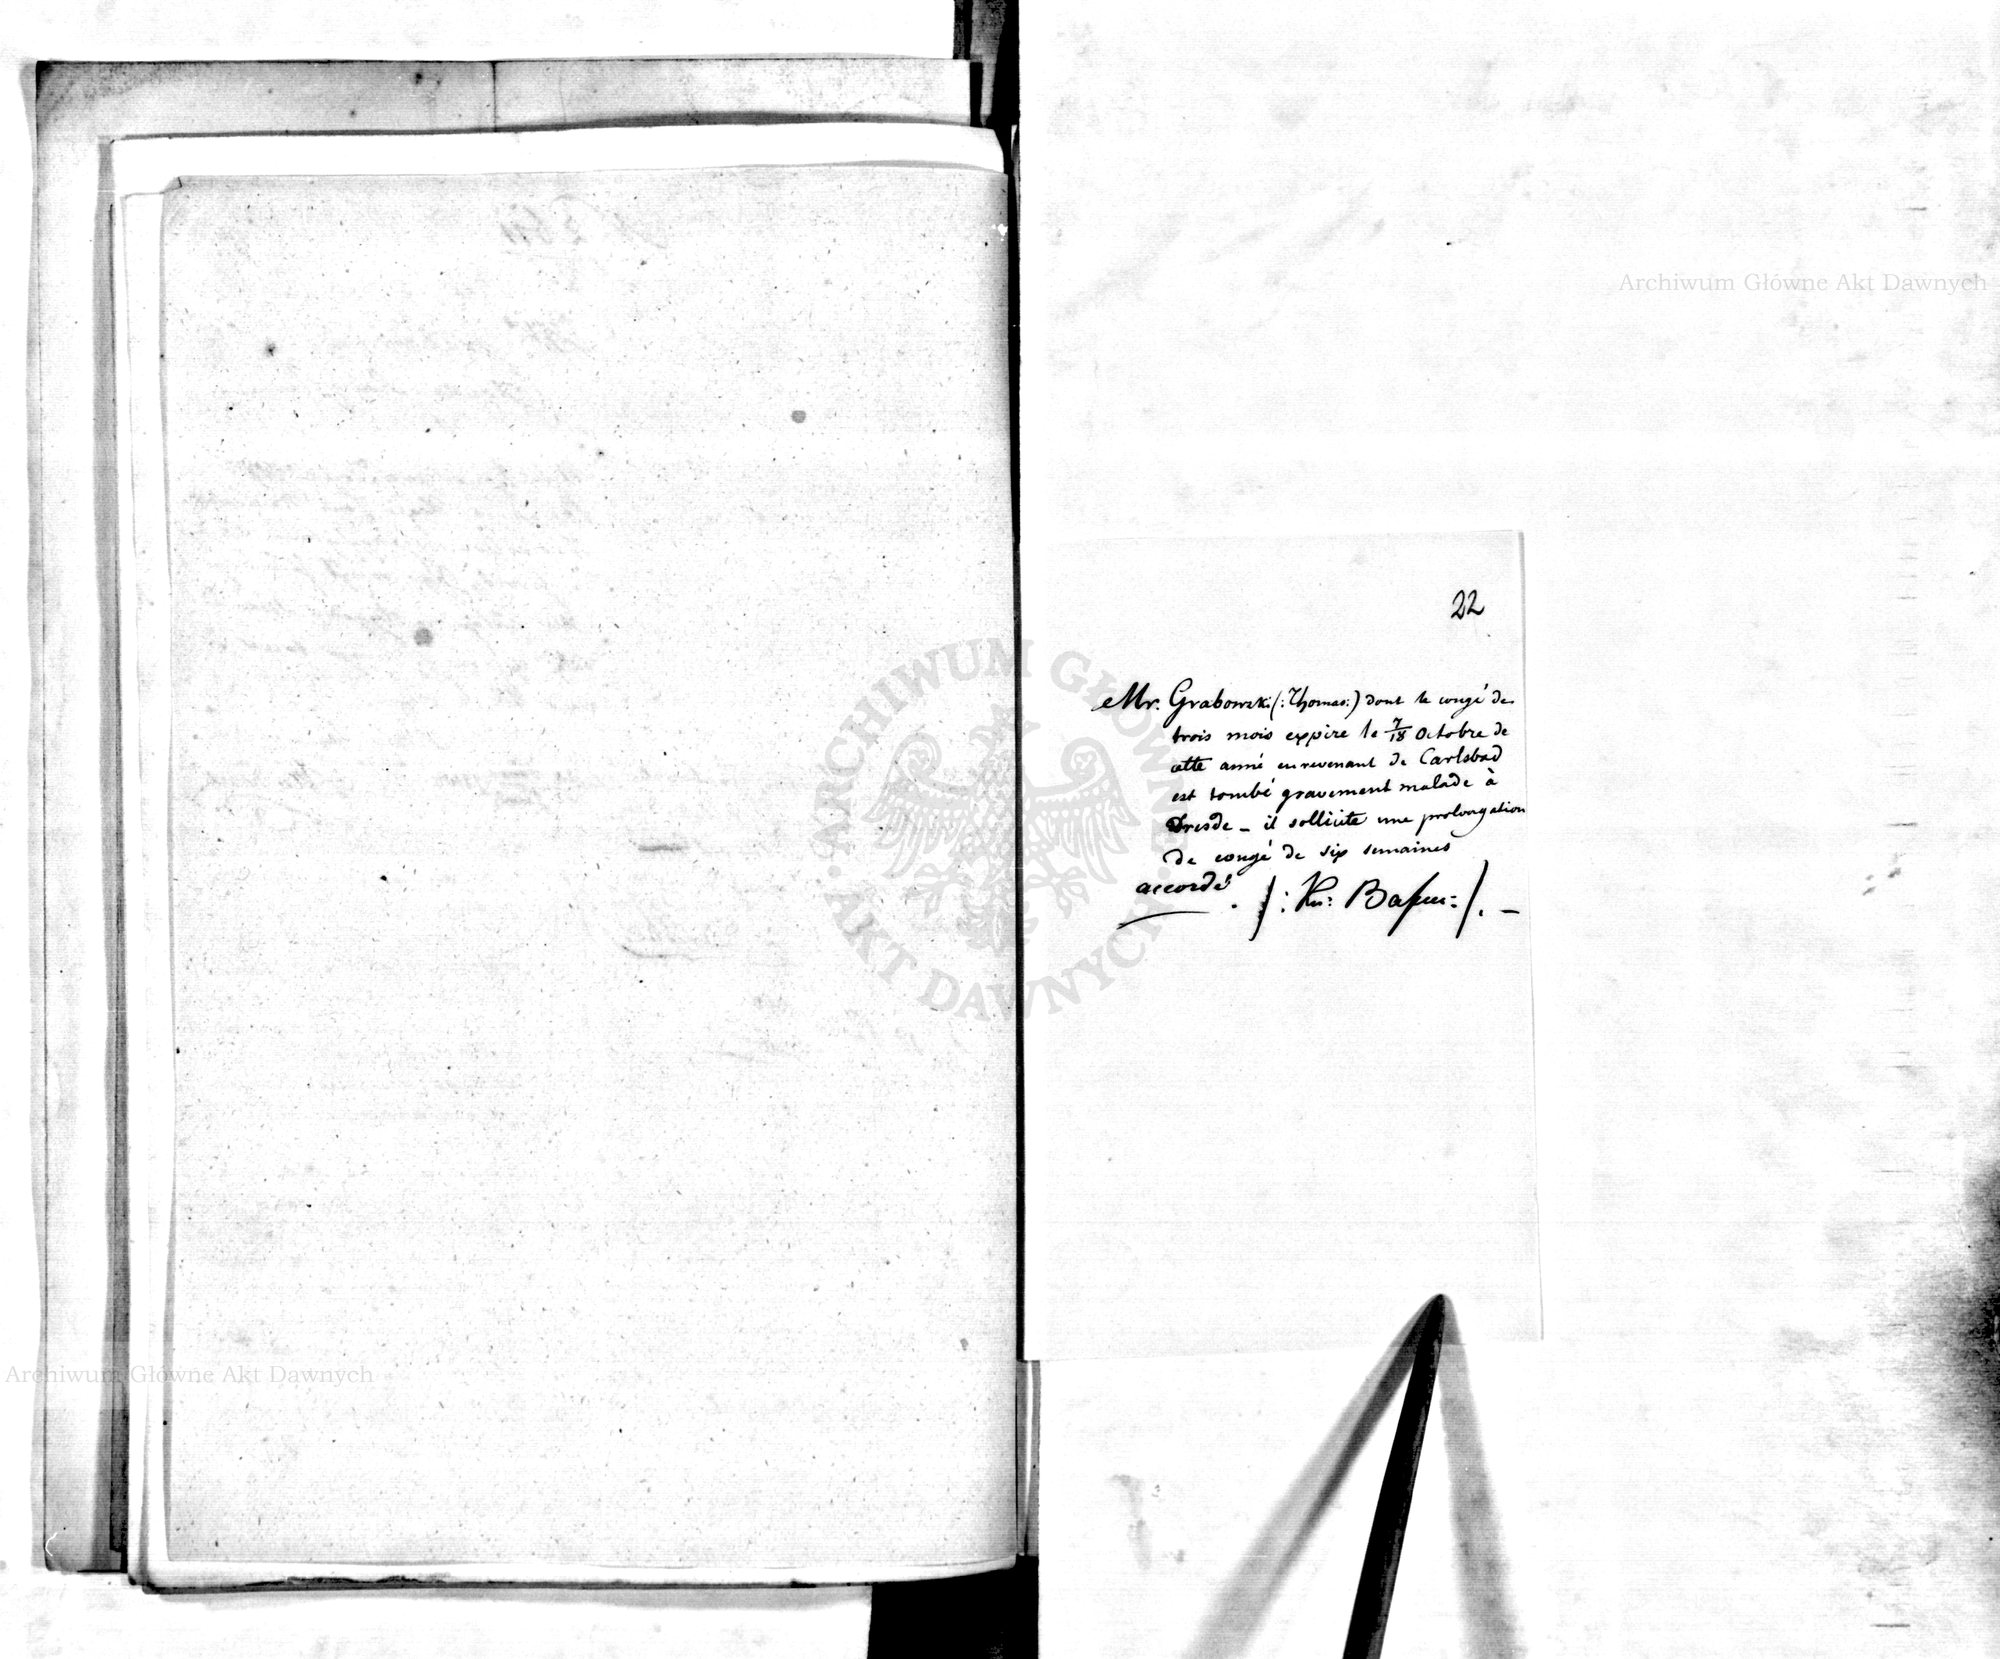 22
Mr. Grabowski (: Thomas :) dont le congé de
trois mois expire le 7/18 Octobre de
cette anné en revenant de Carlsbad
est tombé gravement malade à
Dresde – il sollicite une prolongation
de congé de six semaines
accordé
Archiwum Główne Akt Dawnych
ARCHIWUM GŁÓWNE AKT DAWNYCH
Archiwum Główne Akt Dawnych